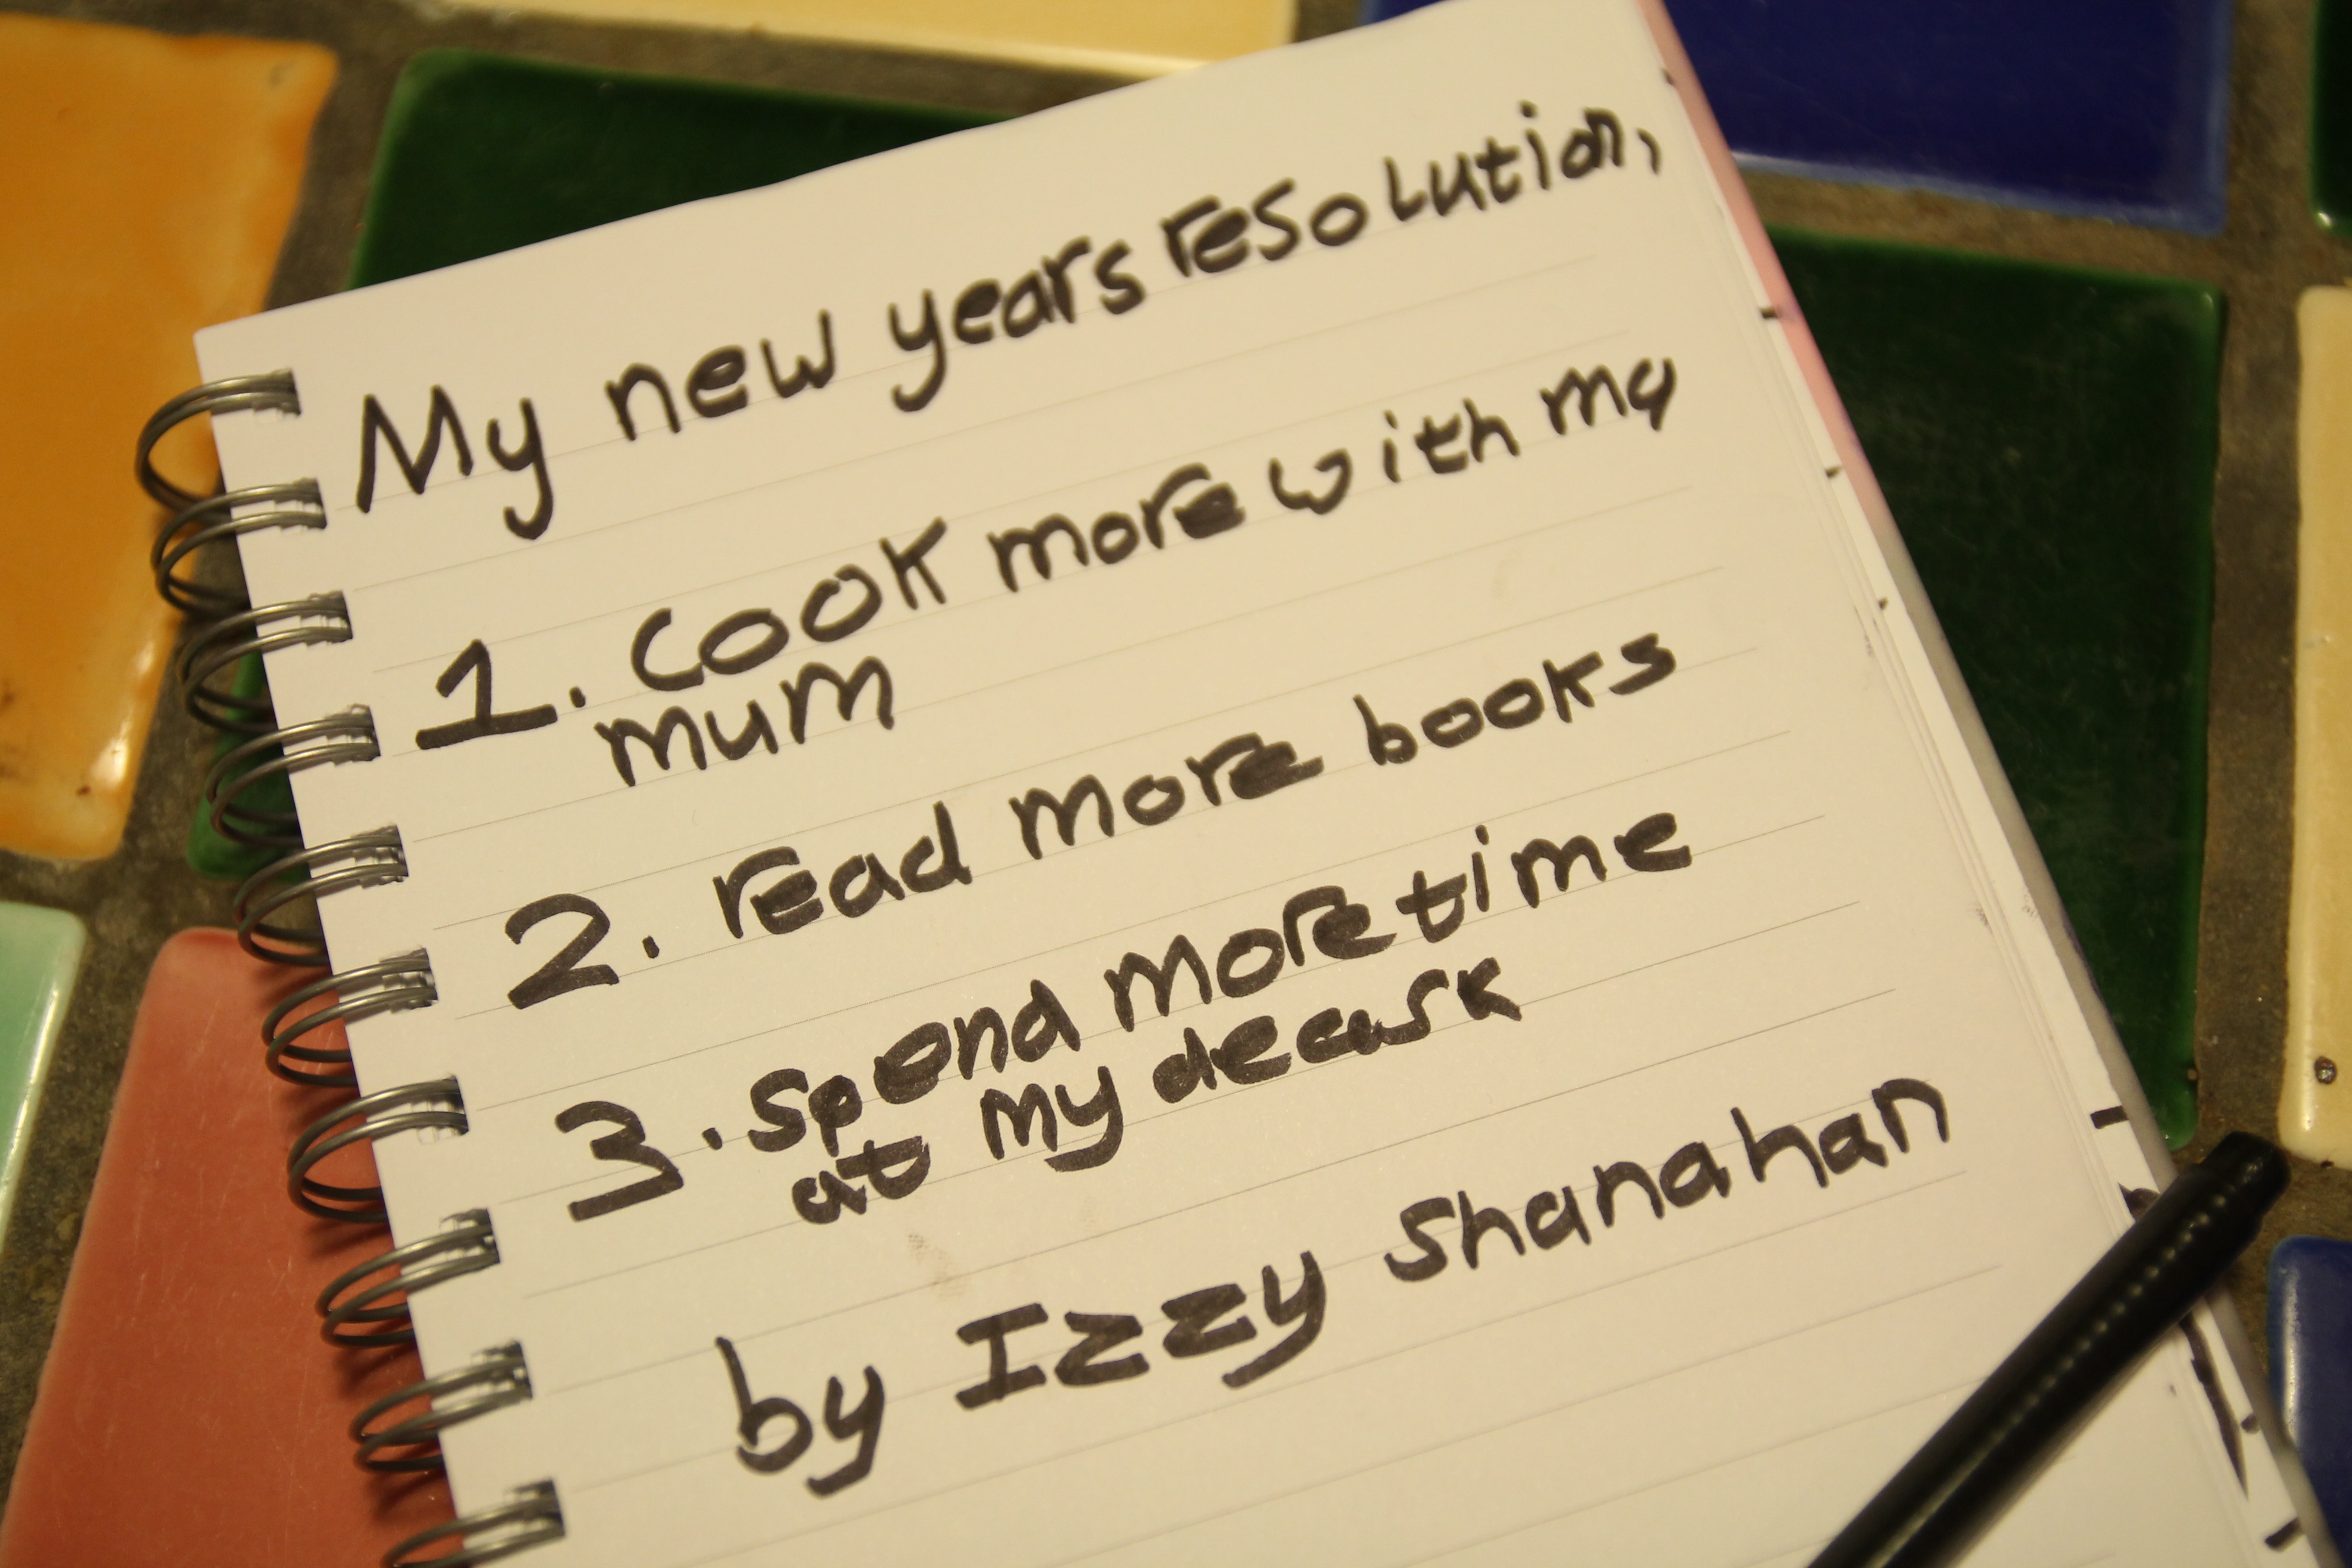 My new years resolution,
1. cook more with my
mum
2. read more books
3. spend more time
at my decusk
by Izzy Shanahan